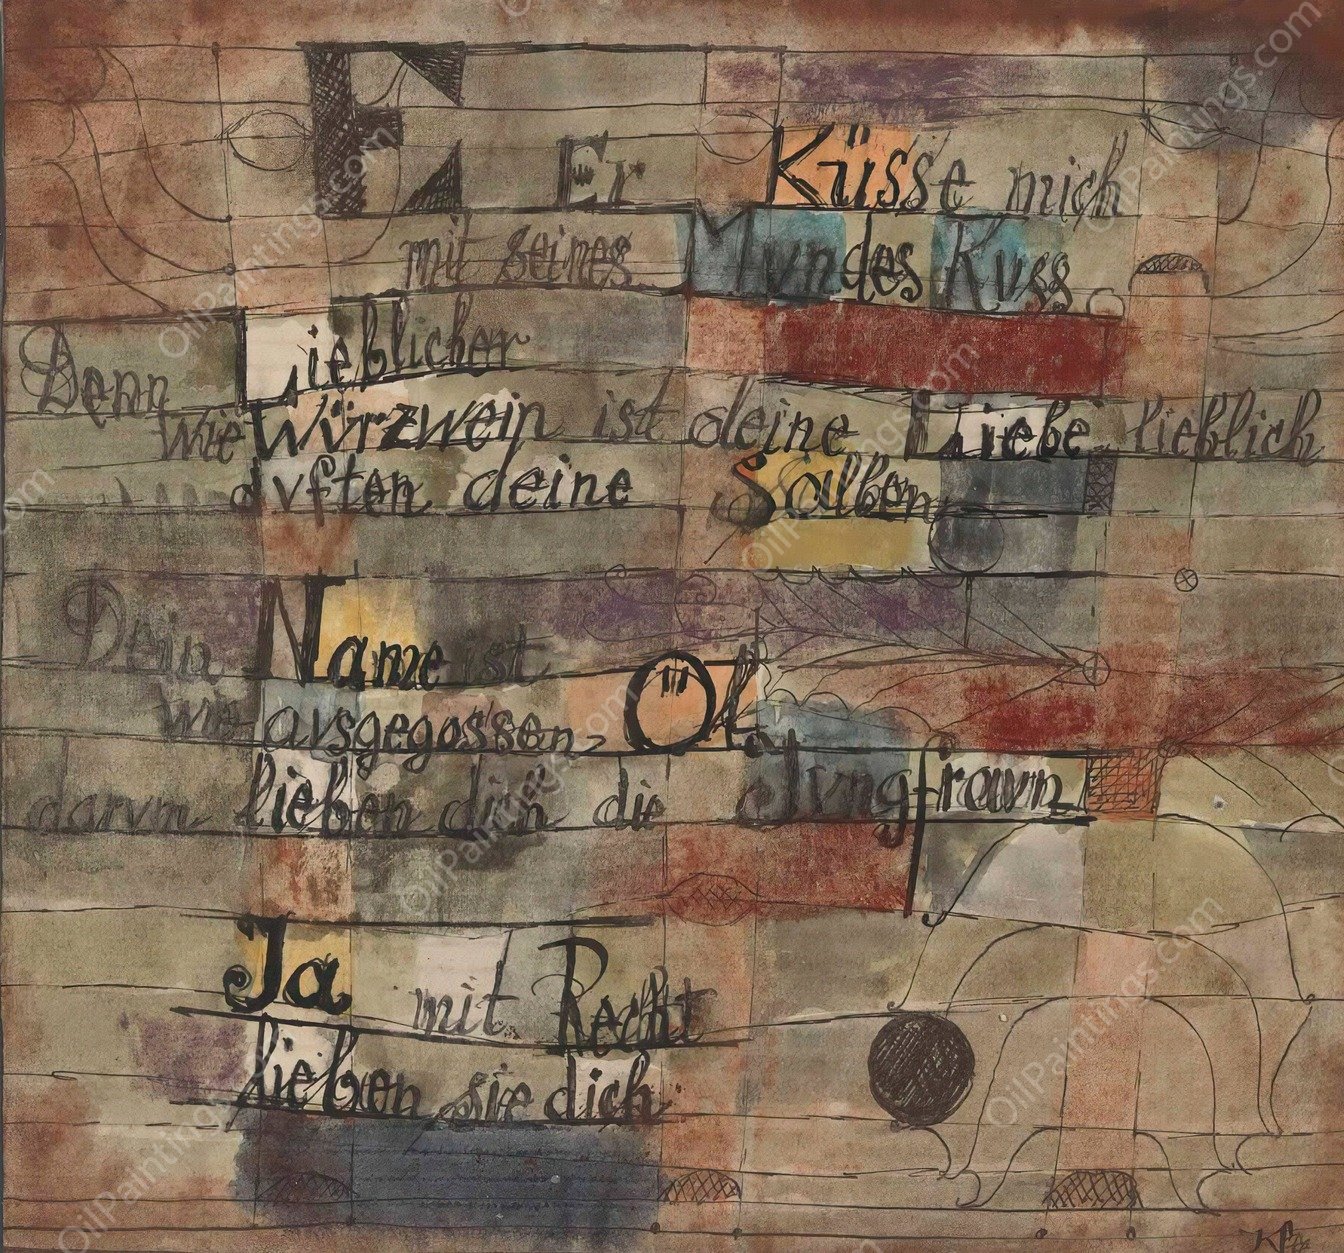 E Er Küsse mich
mit seines Mundes Kuss
Denn Lieblicher
wie Würzwein ist deine Liebe. lieblich
duften deine Salben
Dein Name ist
wie ausgegossen Öl.
darum lieben dich die Jungfraun
Ja mit Recht
lieben sie dich.
Kl
OilPaintings.com